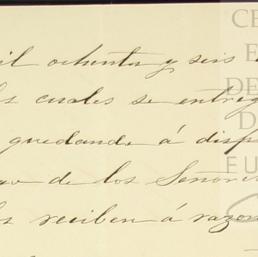 il ochenta y seis
los cuales se entreg
quedando á disp
de los Señores
reciben á razon
CE
E
DE
D
EU